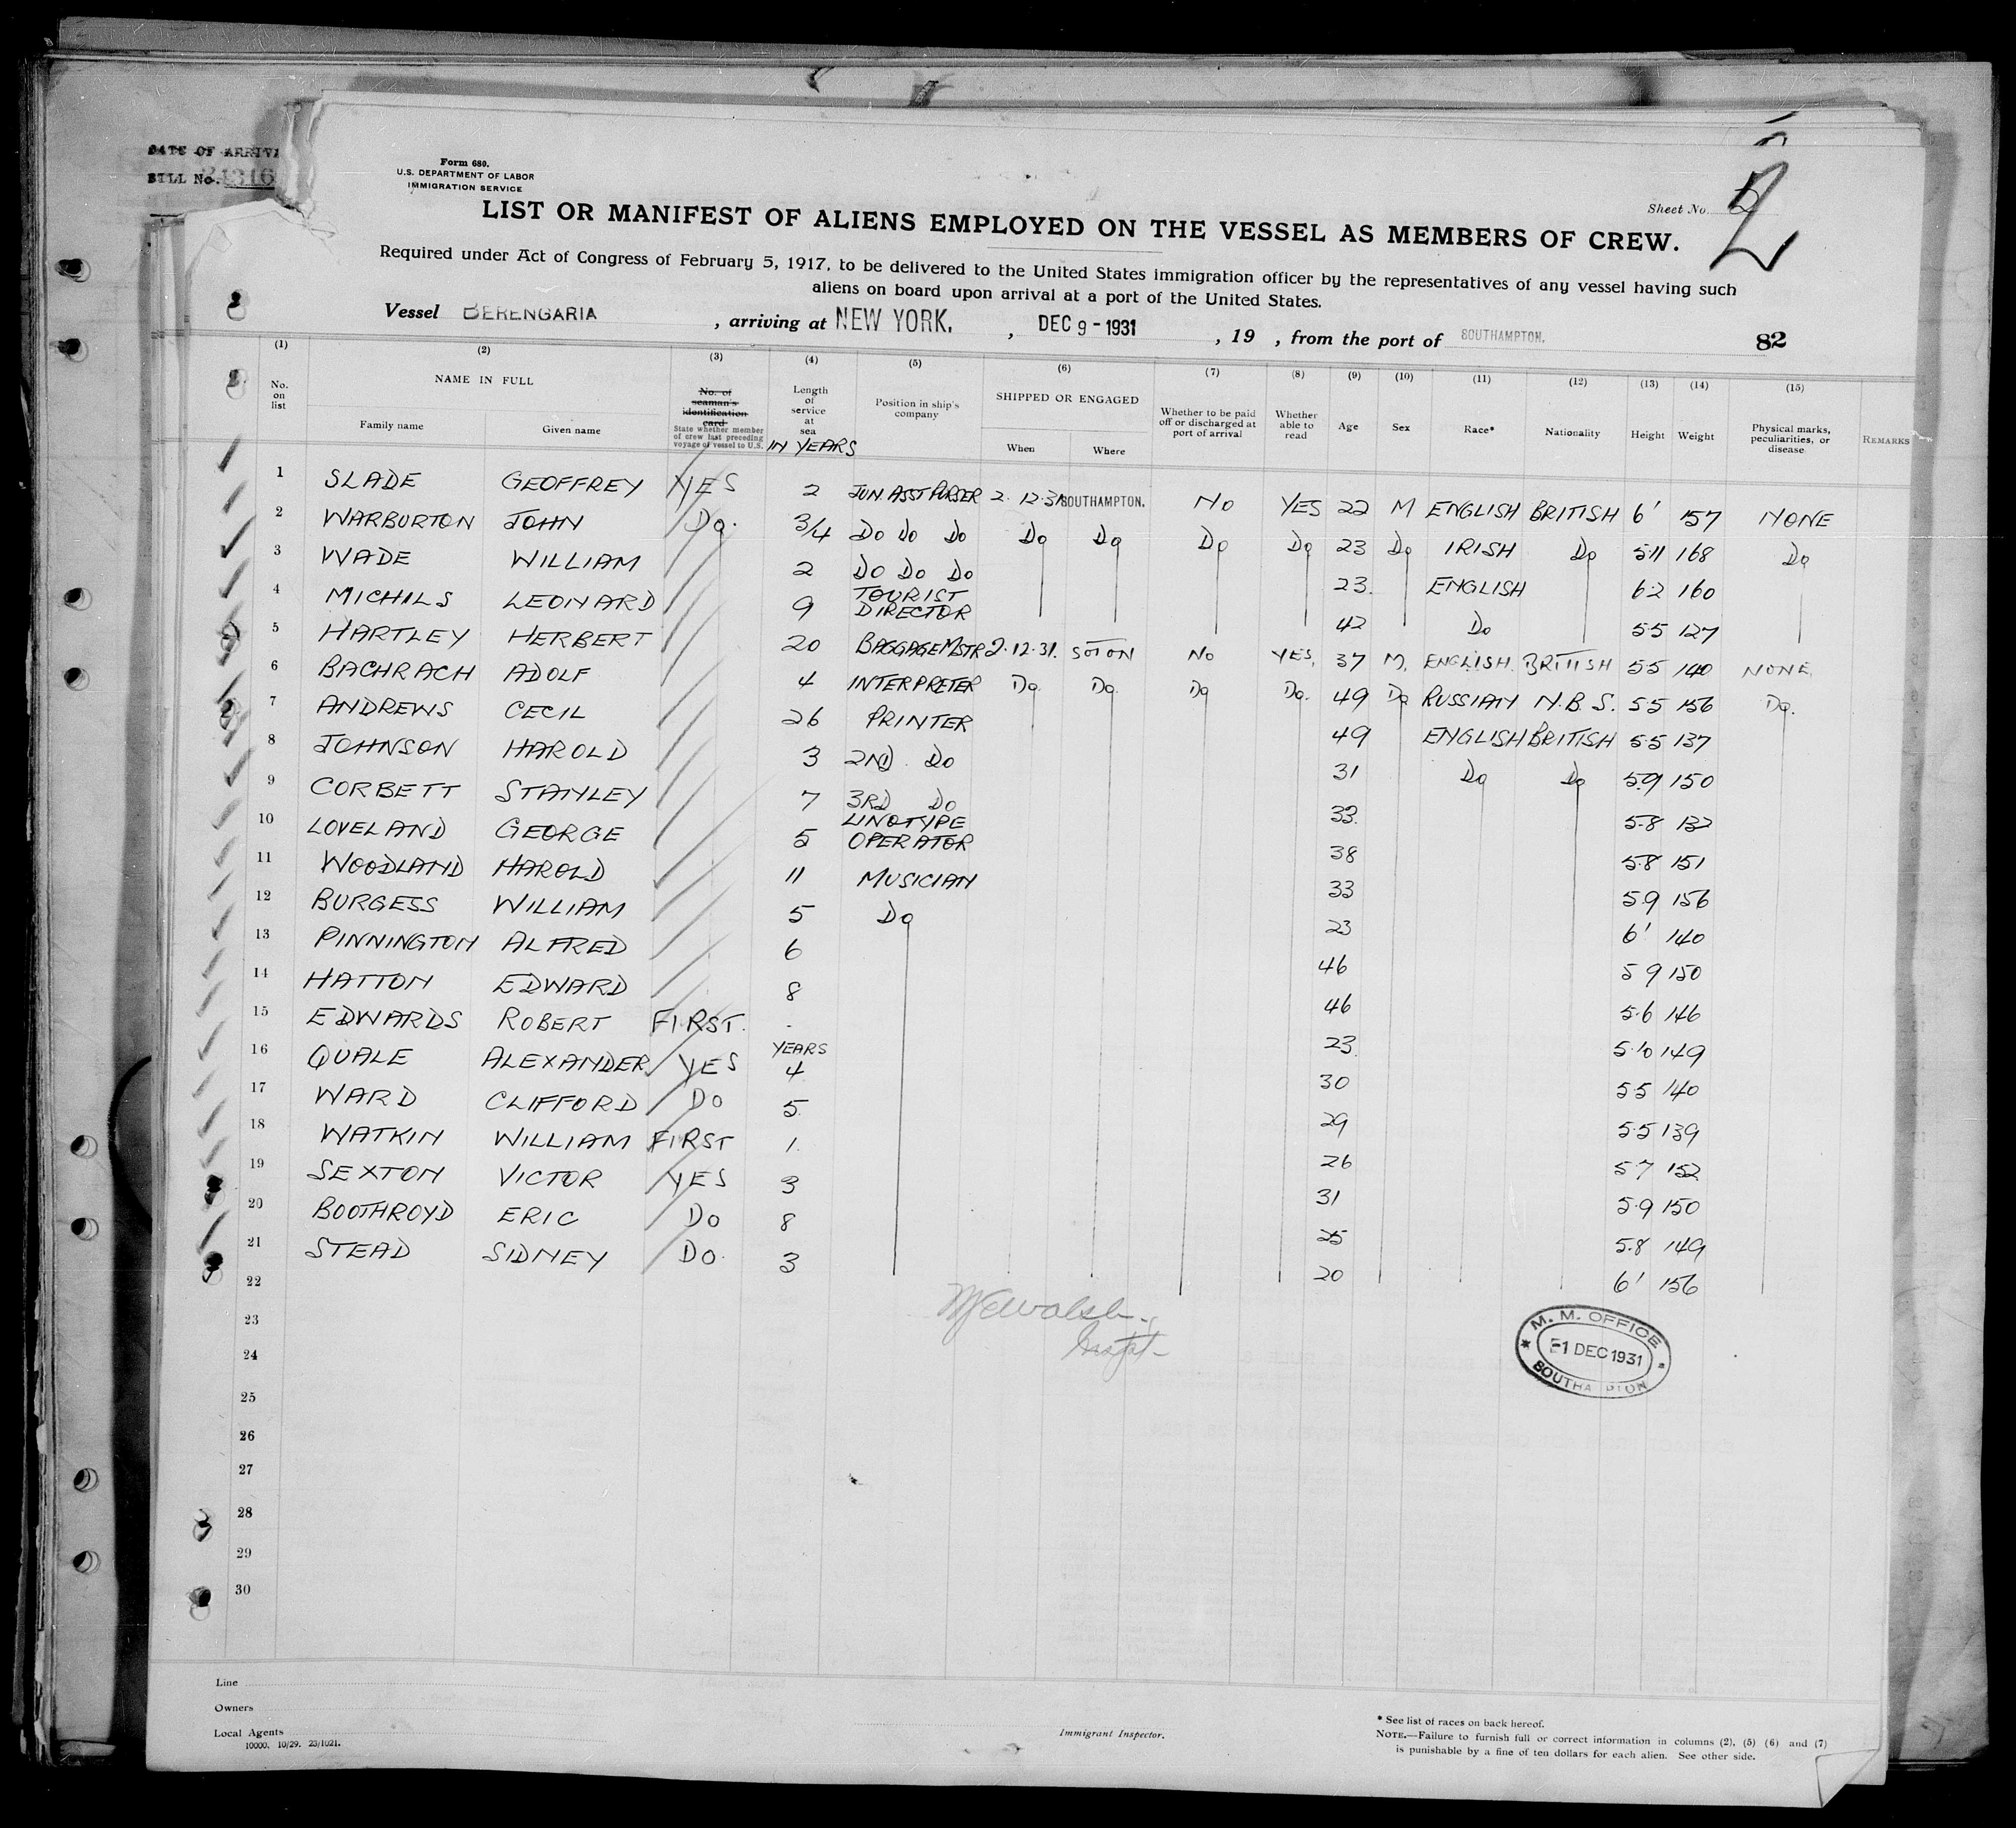 DATE OF ARRIVA
BILL No. 31316
Form 680.
U.S. DEPARTMENT OF LABOR
IMMIGRATION SERVICE
Sheet No. 2
LIST OR MANIFEST OF ALIENS EMPLOYED ON THE VESSEL AS MEMBERS OF CREW.
Required under Act of Congress of February 5, 1917, to be delivered to the United States immigration officer by the representatives of any vessel having such
aliens on board upon arrival at a port of the United States.
Vessel BERENGARIA , arriving at NEW YORK. , DEC 9 - 1931 , 19 , from the port of SOUTHAMPTON. 82
(1) (2) (3) (4) (5) (6) (7) (8) (9) (10) (11) (12) (13) (14) (15)
No. on list NAME IN FULL Family name Given name No. of seaman's identification card State whether member of crew last preceding voyage of vessel to U.S. Length of service at sea IN YEARS Position in ship's company SHIPPED OR ENGAGED When Where Whether to be paid off or discharged at port of arrival Whether able to read Age Sex Race* Nationality Height Weight Physical marks, peculiarities, or disease REMARKS
1 SLADE GEOFFREY YES 2 JUN ASST PURSER 2.12.31 SOUTHAMPTON. NO YES 22 M ENGLISH BRITISH 6' 157 NONE
2 WARBURTON JOHN Do. 3/4 Do Do Do Do Do Do Do 23 Do IRISH Do 5.11 168 Do
3 WADE WILLIAM 2 DO DO DO 23. ENGLISH 6.2 160
4 MICHILS LEONARD 9 TOURIST DIRECTOR 42 Do 5.5 127
5 HARTLEY HERBERT 20 BAGGAGE MSTR 2.12.31. SOTON NO YES. 37 M. ENGLISH. BRITISH 5.5 140 NONE.
6 BACHRACH ADOLF 4 INTERPRETER Do. Do. Do Do. 49 Do RUSSIAN N.B.S. 5.5 156 Do.
7 ANDREWS CECIL 26 PRINTER 49 ENGLISH BRITISH 5.5 137
8 JOHNSON HAROLD 3 2ND Do 31 Do Do 5.9 150
9 CORBETT STANLEY 7 3RD Do 33. 5.8 132
10 LOVELAND GEORGE 5 LINOTYPE OPERATOR 38 5.8 151
11 WOODLAND HAROLD 11 MUSICIAN 33 5.9 156
12 BURGESS WILLIAM 5 Do 23 6' 140
13 PINNINGTON ALFRED 6 46 5.9 150
14 HATTON EDWARD 8 46 5.6 146
15 EDWARDS ROBERT FIRST. - 23. 5.10 149
16 QUALE ALEXANDER YES YEARS 4 30 5.5 140
17 WARD CLIFFORD DO 5. 29 5.5 139
18 WATKIN WILLIAM FIRST 1. 26 5.7 152
19 SEXTON VICTOR YES 3 31 5.9 150
20 BOOTHROYD ERIC DO 8 25 5.8 149
21 STEAD SIDNEY DO. 3 20 6' 156
22
23
24
25
26
27
28
29
30
M. M. OFFICE
1 DEC 1931
SOUTHAMPTON
Line
Owners
Local Agents
10000. 10/29. 23/1021.
Immigrant Inspector.
* See list of races on back hereof.
NOTE.—Failure to furnish full or correct information in columns (2), (5) (6) and (7)
is punishable by a fine of ten dollars for each alien. See other side.